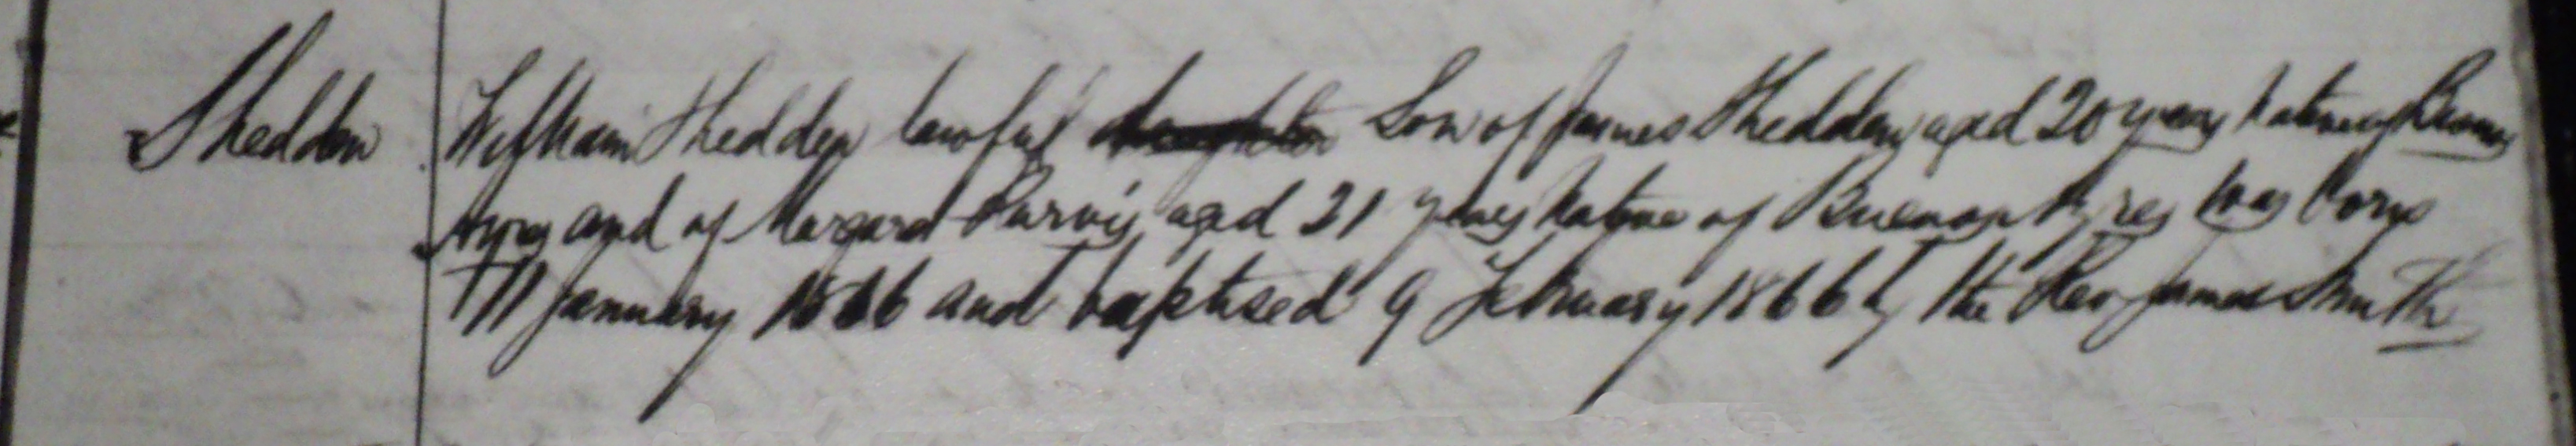 Shedden
William Shedden lawful daughter Son of James Shedden aged 20 years Native of Buenos
Ayres and of Margaret Purvis aged 21 years Native of Buenos Ayres was born
11 January 1866 and baptised 9 February 1866 by the Rev James Smith